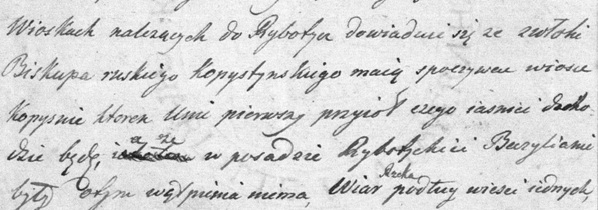 Wioskach nalezących do Rybotycz dowiaduię się ze zwłoki
Biskupa ruskiego Kopystynskiego maią spoczywac wiosce
Kopysnie ktoren Unii pierwszy przyioł czego iasniei docho
dzie będę, a ze w posadzie Rybotyckiei Bazyliani
byli otym wątpienia niema, Wiar Rzeka podług wiesci iednych,